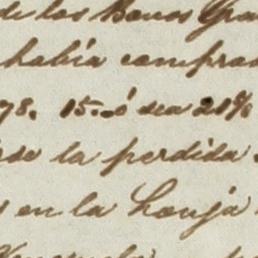 de los Banos Gra
había comprad
78. 15.- ó sea 21%
de la perdida
en la Lonja